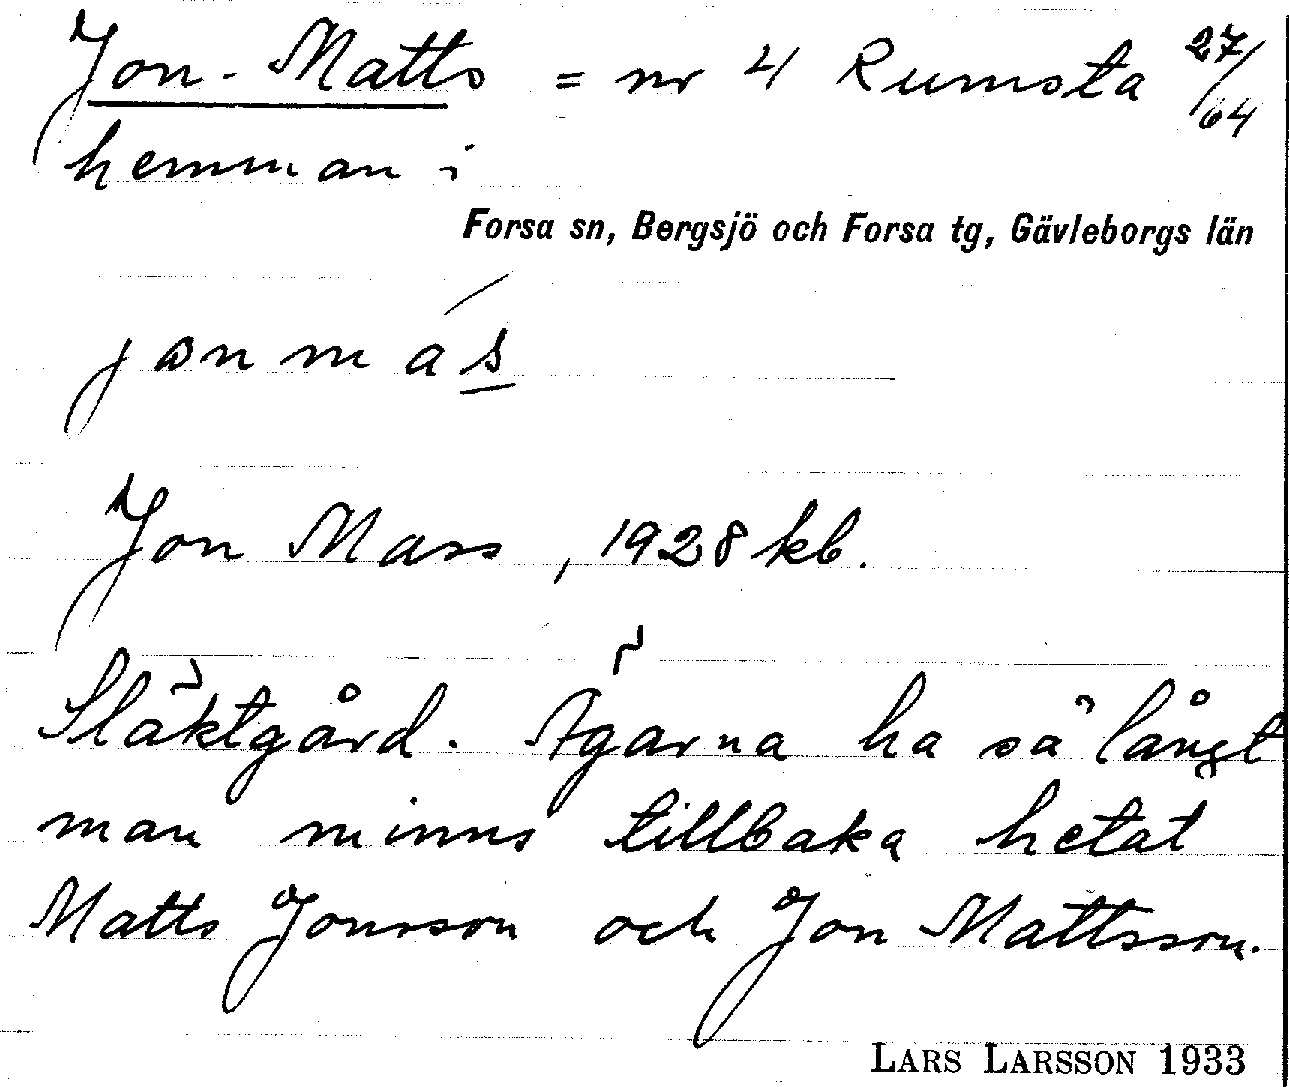 Jon-Matts = nr 4 Rumsta 27/64
hemman i
Forsa sn, Bergsjö och Forsa tg, Gävleborgs län
jɷnmás
Jon Mass, 1928 kb.
Släktgård. Ägarna ha så långt
man minns tillbaka hetat
Matts Jonsson och Jon Mattsson.
LARS LARSSON 1933